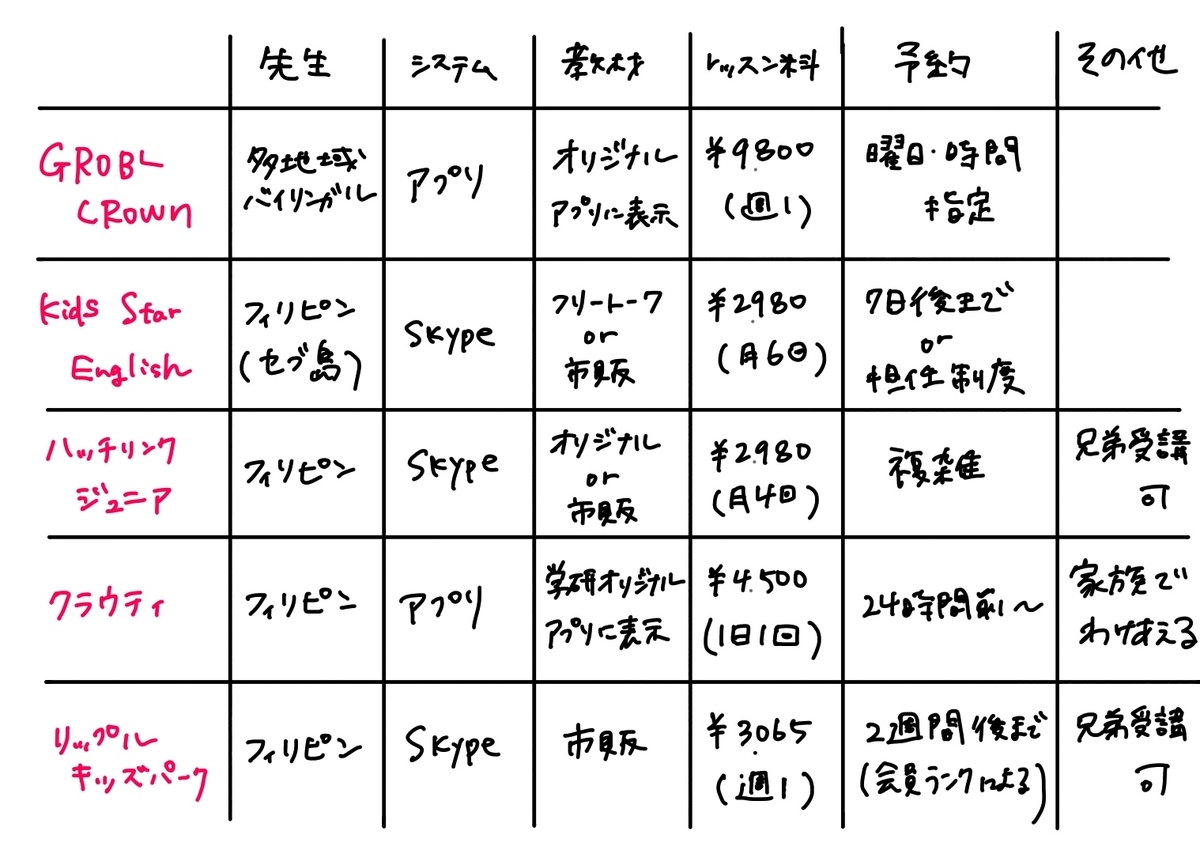 先生 システム 教材 レッスン料 予約 その他
GROBL CROWN 多地域バイリンガル アプリ オリジナル アプリに表示 ¥9800 (週1) 曜日・時間指定
Kids Star English フィリピン (セブ島) Skype フリートーク or 市販 ¥2980 (月6回) 7日後まで or 担任制度
ハッチリンクジュニア フィリピン Skype オリジナル or 市販 ¥2980 (月4回) 複雑 兄弟受講可
クラウティ フィリピン アプリ 学研オリジナル アプリに表示 ¥4.500 (1日1回) 24時間前〜 家族でわけあえる
リップルキッズパーク フィリピン Skype 市販 ¥3065 (週1) 2週間後まで (会員ランクによる) 兄弟受講可